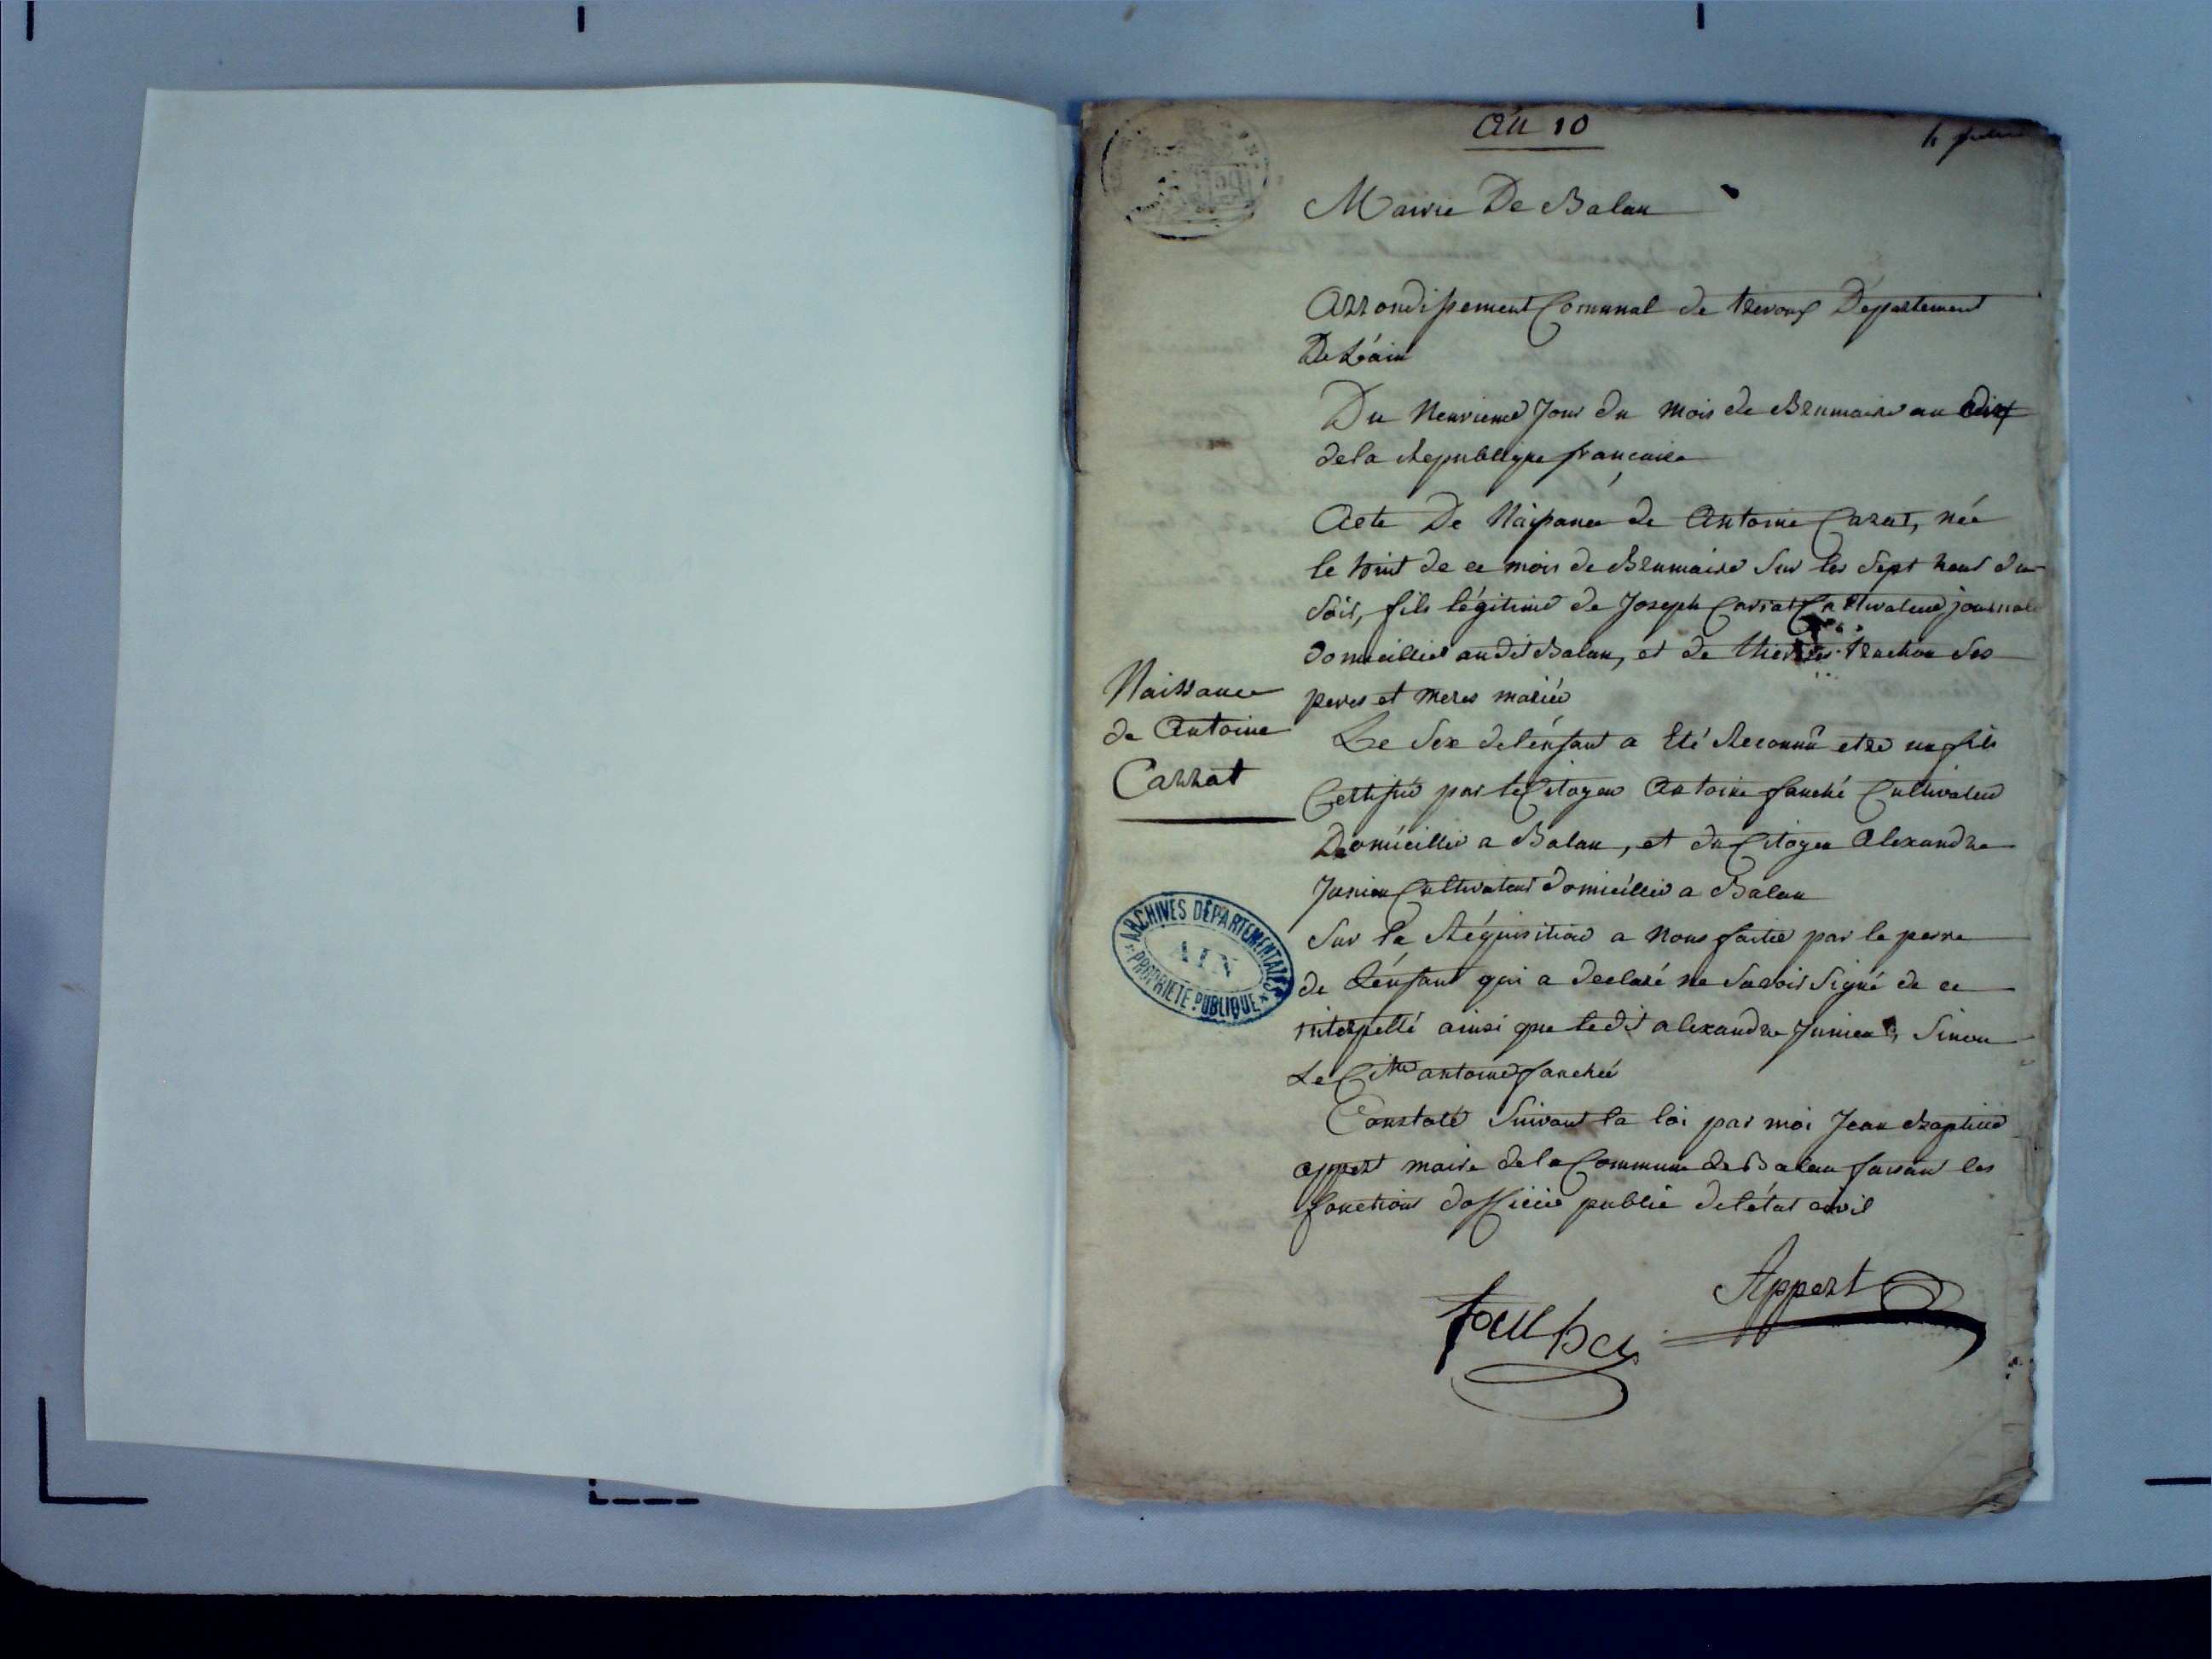 an 10
Mairie De Balan
Arrondissement Communal de trevoux Département
De L'ain
Du Neuvieme Jour du mois de Brumaire an dix
dela Republique francaise
Acte De Naissance de Antoine Carat, née
le huit de ce mois de Brumaire sur les sept heur du
soir, fils légitime de Joseph Carrat Cultivateur journal
domicillier audit Balan, et de truchon ses
peres et meres mariée
Naissance
de Antoine
Carrat
Le sexe delénfant a Eté Reconnû etre un fils
Certifié par le Citoyen Antoine fauché Cultivateur
Domicillié a Balan, et du Citoyen Alexandre
Junien Cultivateur domicillié a Balan
sur la Réquisition a nous faitee par le perre
de L'énfant qui a declaré ne savoir signé de ce
interpellé ainsi que ledit alexandre Junien, sinon
Le antoine fauchée
Constaté suivant la loi par moi Jean Baptiste
appert maire dela Commune de Balan faisant les
fonctions dofficier public delétat civil
Appert
ARCHIVES DÉPARTEMENTALES
AIN
PROPRIÉTÉ PUBLIQUE